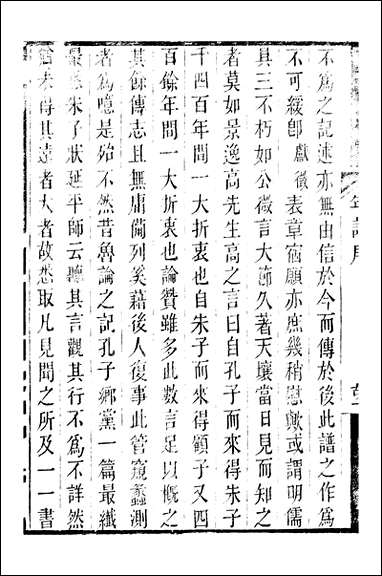 不為之記述亦無由信於今而傳於後此譜之作為
不可緩卽獻徵表章宿願亦庶幾稍慰歟或謂明儒
具三不朽如公微言大節久著天壤當日見而知之
者莫如景逸高先生高之言曰自孔子而來得朱子
千四百年間一大折衷也自朱子而來得顧子又四
百餘年間一大折衷也論贊雖多此數言足以概之
其餘傳志且無庸備列奚藉後人復事此管窺蠡測
者為噫是殆不然昔魯論之記孔子鄉黨一篇最纖
最悉朱子狀延平師云聽其言觀其行不為不詳然
猶未得其遠者大者故悉取凡見聞之所及一一書
年譜序